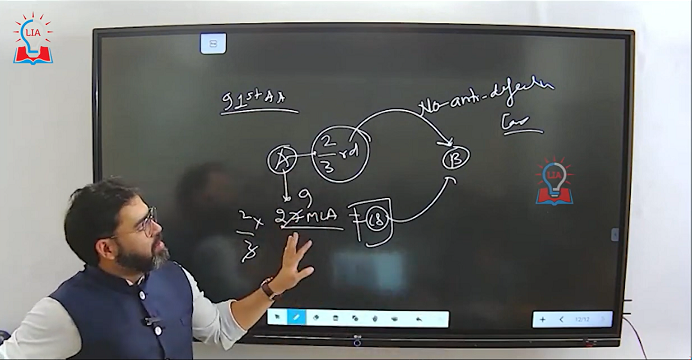 LIA
91st AA
No-anti-defection
Case
A
2/3 rd
B
9
2/3 × 27 MLA = 18
LIA
12/12